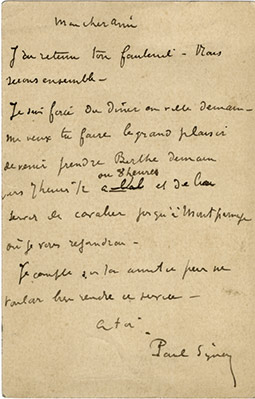 Mon cher ami
J'ai retenu ton fauteuil - Nous
serons ensemble -
Je suis forcé de dîner en ville demain -
me veux tu faire le grand plaisir
de venir prendre Berthe demain
ou 8 heures
vers 7 heures 1/2 et de lui
servir de cavalier jusqu'à Montparnasse
où je vous rejoindrai -
Je compte sur ton amitié pour me
vouloir bien rendre ce service -
à toi
Paul Signac